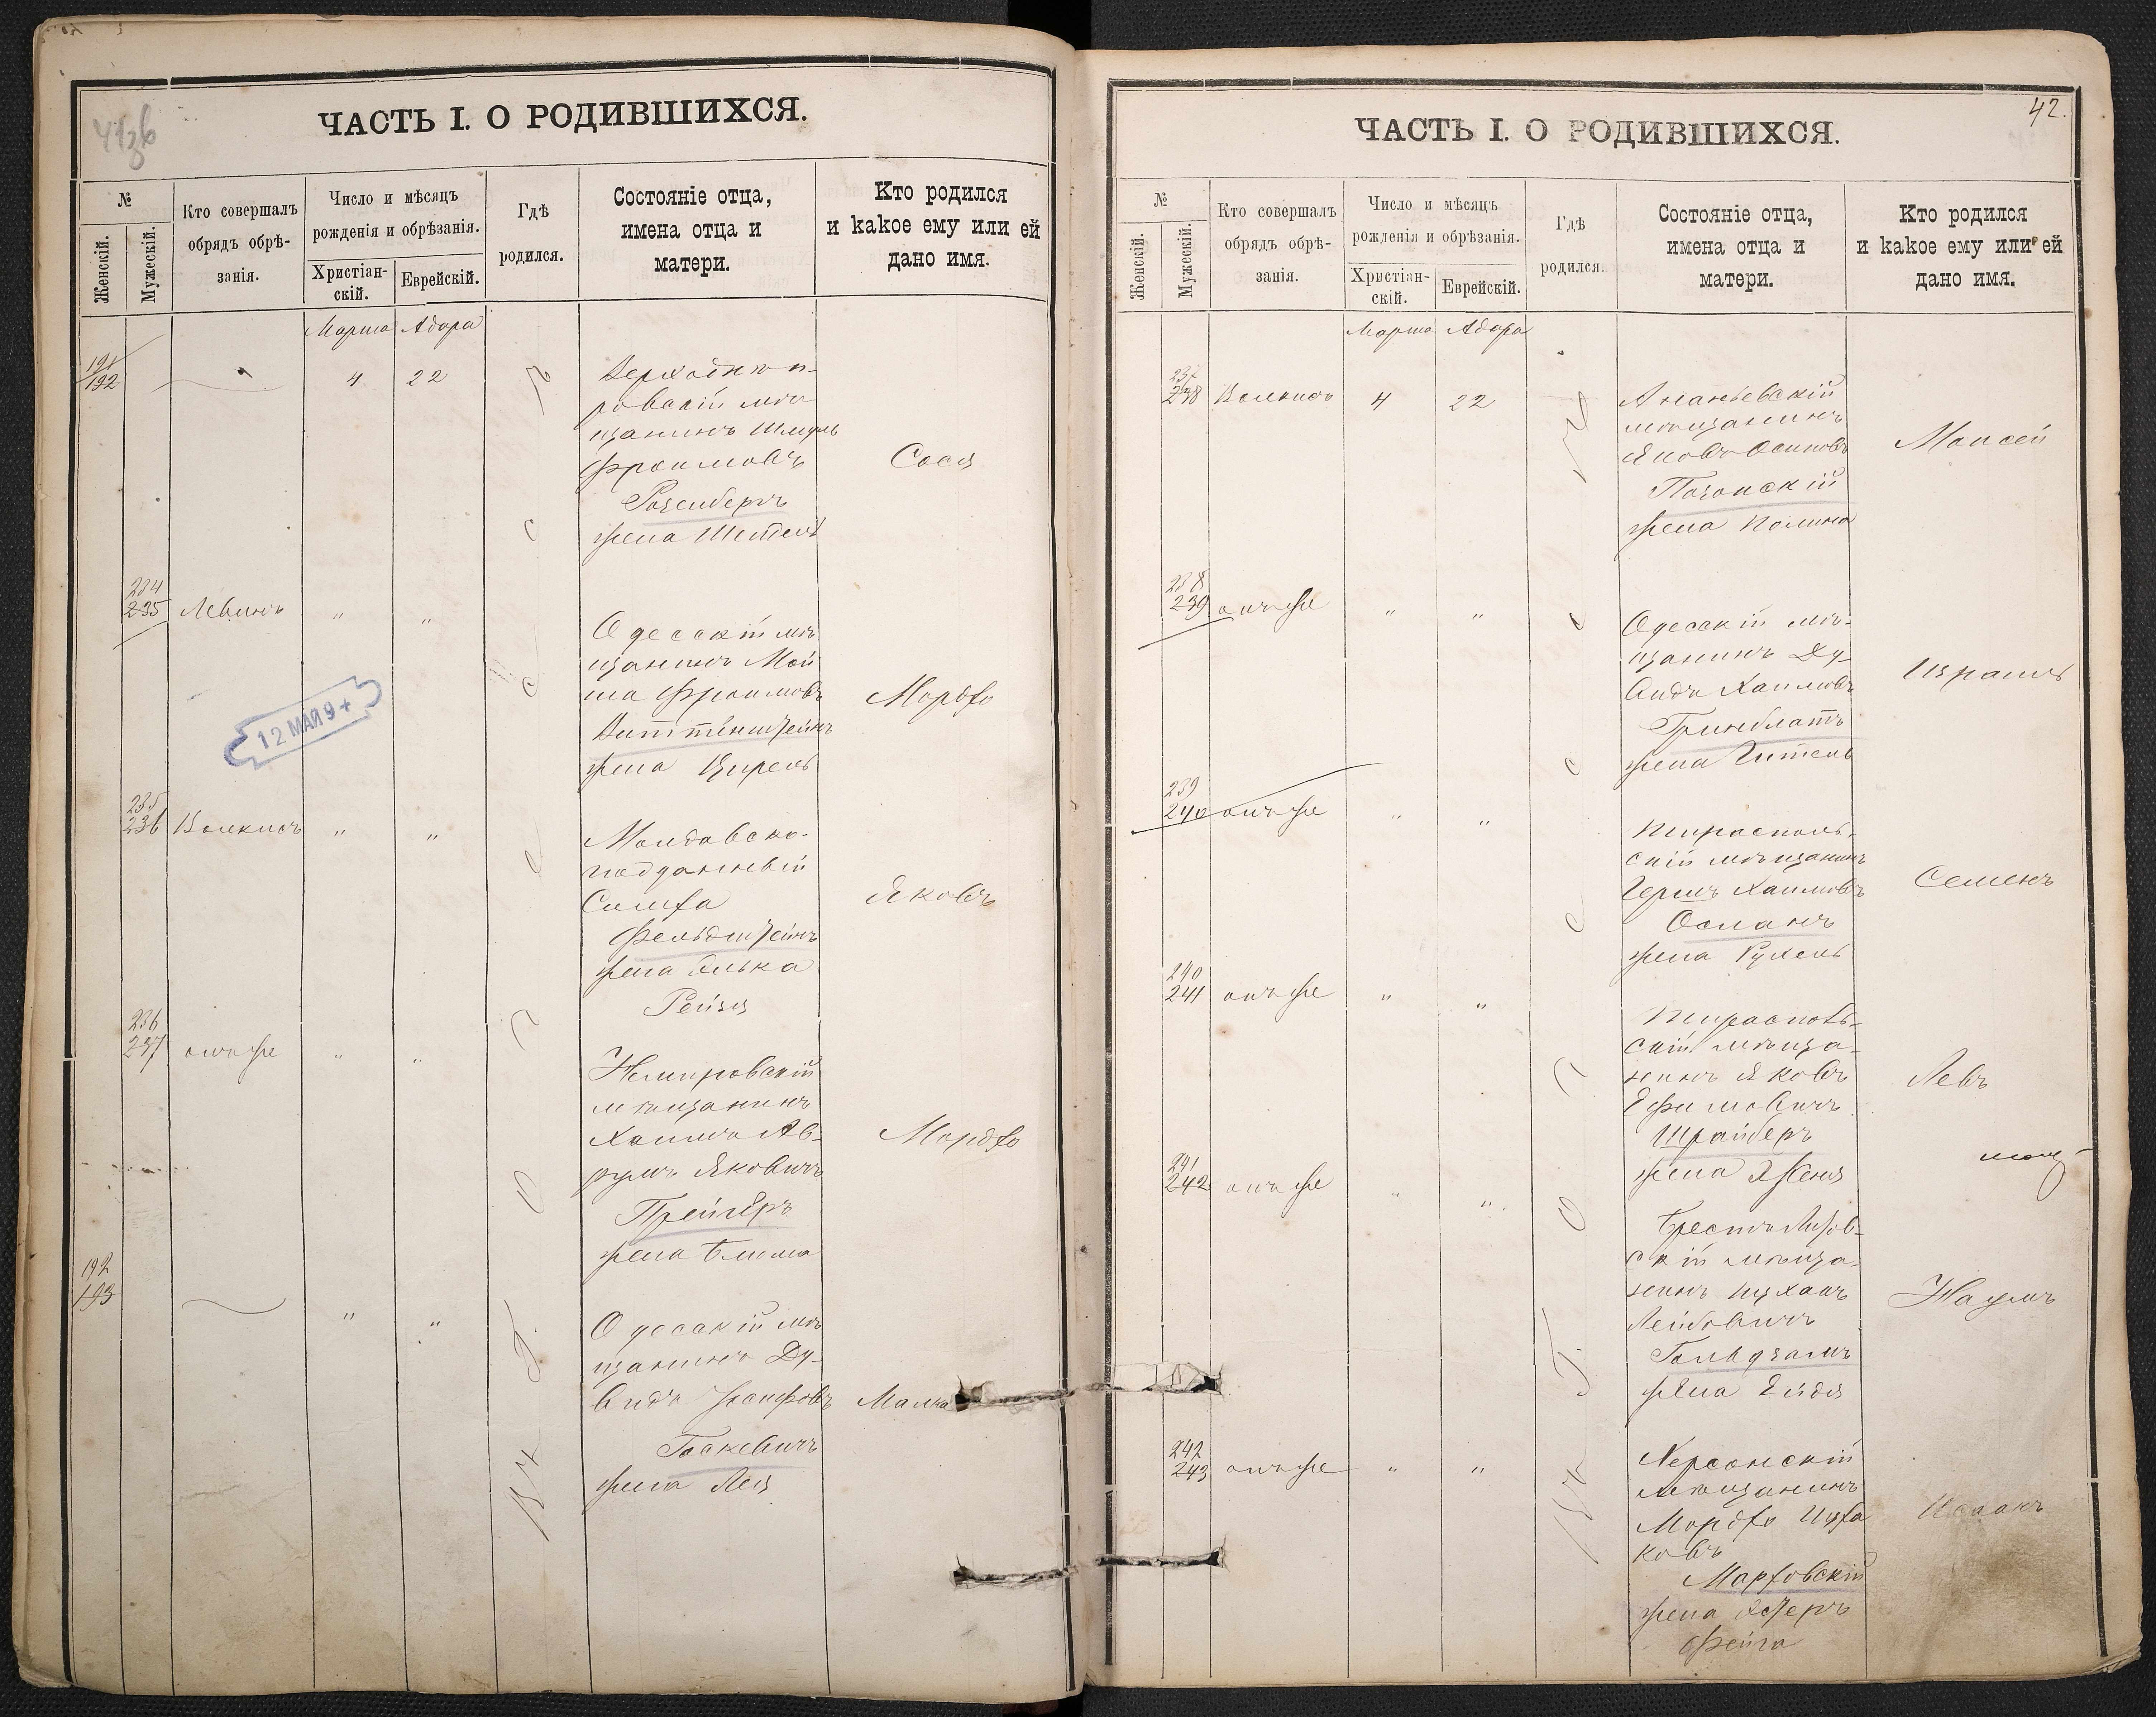 41зв
ЧАСТЬ I. О РОДИВШИХСЯ.
№
Женскій.
Мужескій.
Кто совершалъ
обрядъ обрѣ-
занія.
Число и мѣсяцъ
рожденія и обрѣзанія.
Христіан-
скій.
Еврейскій.
Гдѣ
родился.
Состояніе отца,
имена отца и
матери.
Кто родился
и какое ему или ей
дано имя.
Марта Адара
191
192
4 22
Верходнѣп-
ровскій мѣ-
щанинъ Шмуль
Фроимовъ
Розенбергъ
жена Шейтель
Сося
234
235 Левинъ " "
Одесскій мѣ
щанинъ Мой
ша Фроимовъ
Виттенштейнъ
жена Цирель
Мордко
12 МАЯ 9
235
236 Волкисъ " "
Молдавско-
подданный
Симха
Фельдштейнъ
жена Элька
Рейзя
Яковъ
236
237 онъ же " "
Немировскій
мѣщанинъ
Хаимъ Ав-
румъ Яковичъ
Трейгеръ
жена Блима
Мордко
192
193 " "
Одесскій мѣ
щанинъ Ду-
видъ
Госкевичъ
жена Лея
Малка
Въ г. Одессѣ
42.
ЧАСТЬ I. О РОДИВШИХСЯ.
№
Женскій.
Мужескій.
Кто совершалъ
обрядъ обрѣ-
занія.
Число и мѣсяцъ
рожденія и обрѣзанія.
Христіан-
скій.
Еврейскій.
Гдѣ
родился.
Состояніе отца,
имена отца и
матери.
Кто родился
и какое ему или ей
дано имя.
Марта Адара
237
238 Волкисъ 4 22
Ананьевскій
мѣщанинъ
Яковъ Осиповъ
жена Полина
Моисей
238
239 онъ же " "
Одесскій мѣ-
щанинъ Ду-
видъ Хаимовъ
Гринблатъ
жена Гитель
Израиль
239
240 онъ же " "
Тирасполь-
скій мѣщанинъ
Гершъ Хаимовъ
Осланъ
жена Рухель
Семенъ
240
241 онъ же " "
Тирасполь-
скій мѣща-
нинъ Яковъ
Ефимовичъ
Шрайберъ
жена Ксеня
Левъ
241
242 онъ же " "
Брестъ Литов-
скій мѣща-
нинъ Цуханъ
Лейбовичъ
Гольдзамъ
жена Ейдя
Наумъ
242
243 онъ же " "
Херсонскій
мѣщанинъ
Мордко Ицка
ковъ
Марховскій
жена Эстеръ
Фейга
Исаакъ
Въ г. Одессѣ